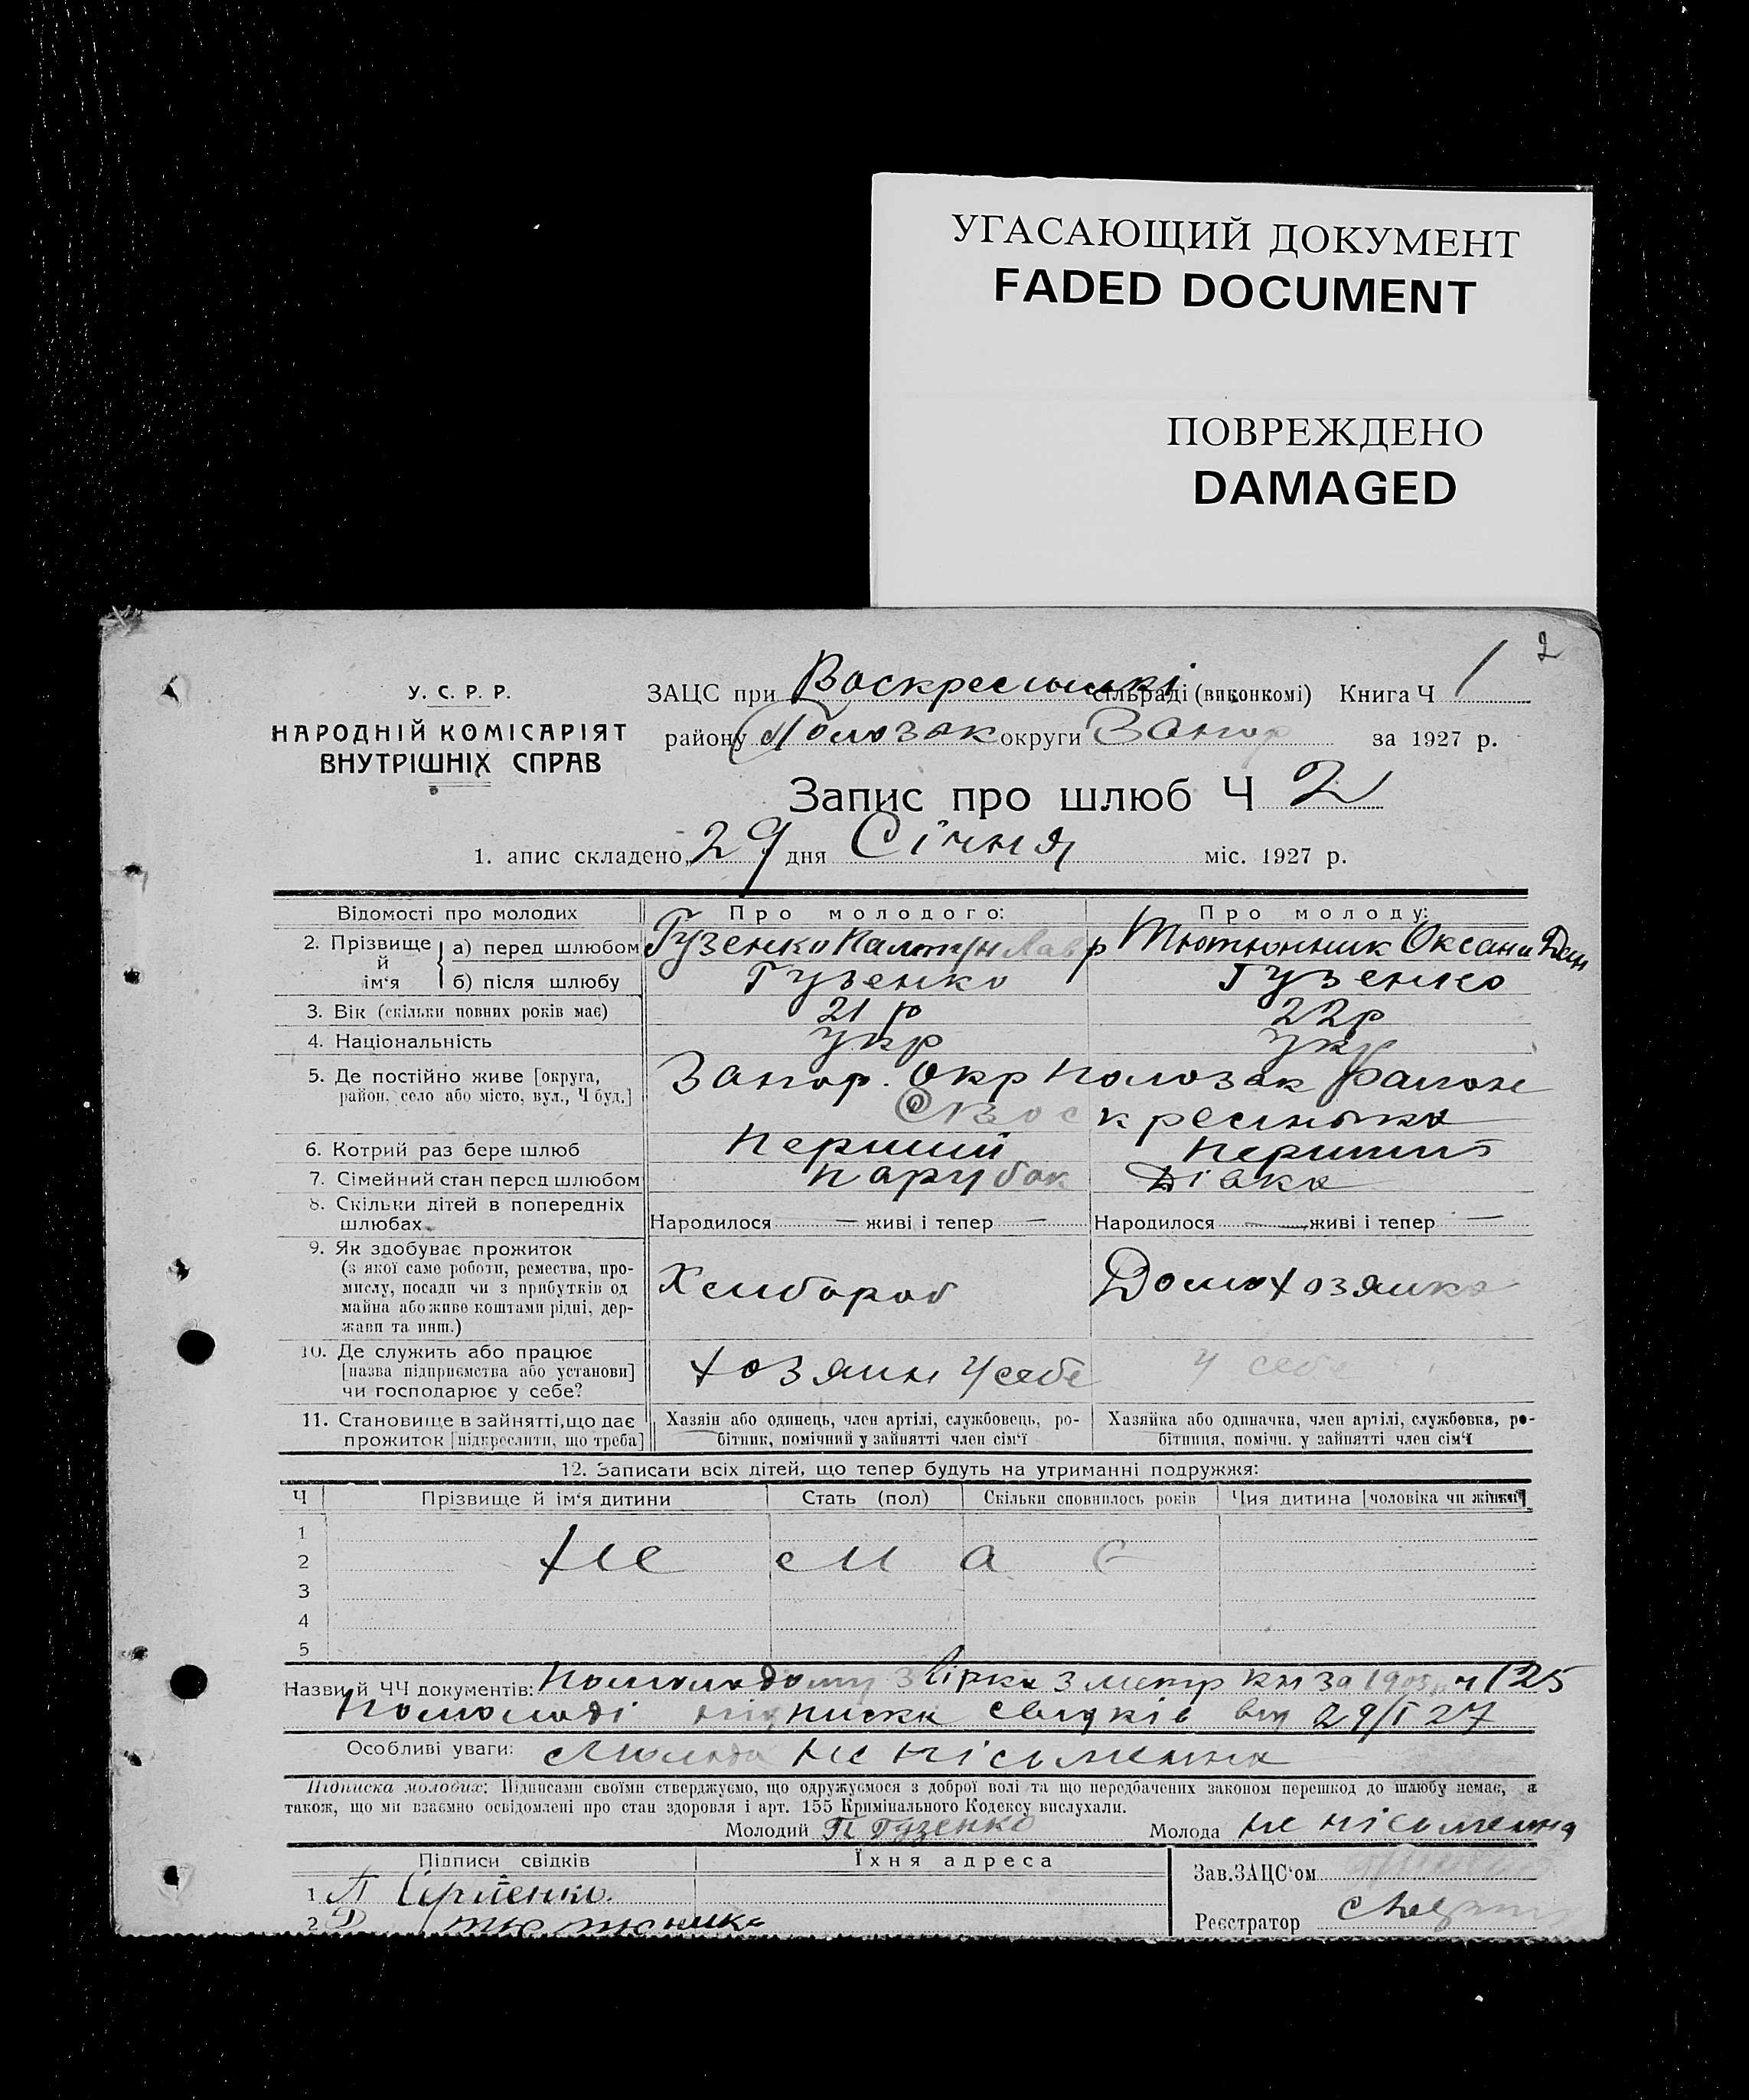 УГАСАЮЩИЙ ДОКУМЕНТ
FADED DOCUMENT
ПОВРЕЖДЕНО
DAMAGED
2
У. С. Р. Р.
НАРОДНІЙ КОМІСАРІЯТ
ВНУТРІШНІХ СПРАВ
ЗАЦС при Воскресенькі сільраді (виконкомі) Книга Ч 1
району Пологзак округи Запор за 1927 р.
Запис про шлюб Ч 2
1. апис складено „29 дня Січня міс. 1927 р.
Відомості про молодих Про молодого: Про молоду:
2. Прізвище й ім'я а) перед шлюбом Гузенко Лавр Тютюнник Оксана Дем
б) після шлюбу Гузенко Гузенко
3. Вік (скільки повних років має) 21 р 22 р
4. Національність укр укр
5. Де постійно живе [округа, Запор. Окр Пологзак Район
район, село або місто, вул., Ч буд.] с Воскресенька
6. Котрий раз бере шлюб Перший Перший
7. Сімейний стан перед шлюбом парубок Дівка
8. Скільки дітей в попередніх
шлюбах. Народилося — живі і тепер — Народилося — живі і тепер —
9. Як здобуває прожиток
(з якої саме роботи, ремества, про-
мислу, посади чи з прибутків од Хлибороб Домохозяйка
майна або живе коштами рідні, дер-
жави та инш.)
10. Де служить або працює
[назва підприємства або установи] хозяин у себе у себе
чи господарює у себе?
11. Становище в зайнятті, що дає Хазяїн або одинець, член артілі, службовець, ро- Хазяйка або одиначка, член артілі, службовка, ро-
прожиток [підкреслити, що треба] бітник, помічний у зайнятті член сім'ї бітниця, помічн. у зайнятті член сім'ї
12. Записати всіх дітей, що тепер будуть на утриманні подружжя:
Ч Прізвище й ім'я дитини Стать (пол) Скільки сповнилось років Чия дитина [чоловіка чи жінки]
1
2 Не м а є
3
4
5
Назви й ЧЧ документів: По молодому звірка з метр кн за 1905 ч 125
По молоді підписка свидків вид 29/I 27
Особливі уваги: Молода не пісьменна
Підписка молодих: Підписами своїми стверджуємо, що одружуємося з доброї волі та що передбачених законом перешкод до шлюбу немає, а
також, що ми взаємно освідомлені про стан здоров'я і арт. 155 Кримінального Кодексу вислухали.
Молодий П Гузенко Молода не пісьменна
Підписи свідків Їхня адреса Зав. ЗАЦС'ом
1. П
2 Реєстратор